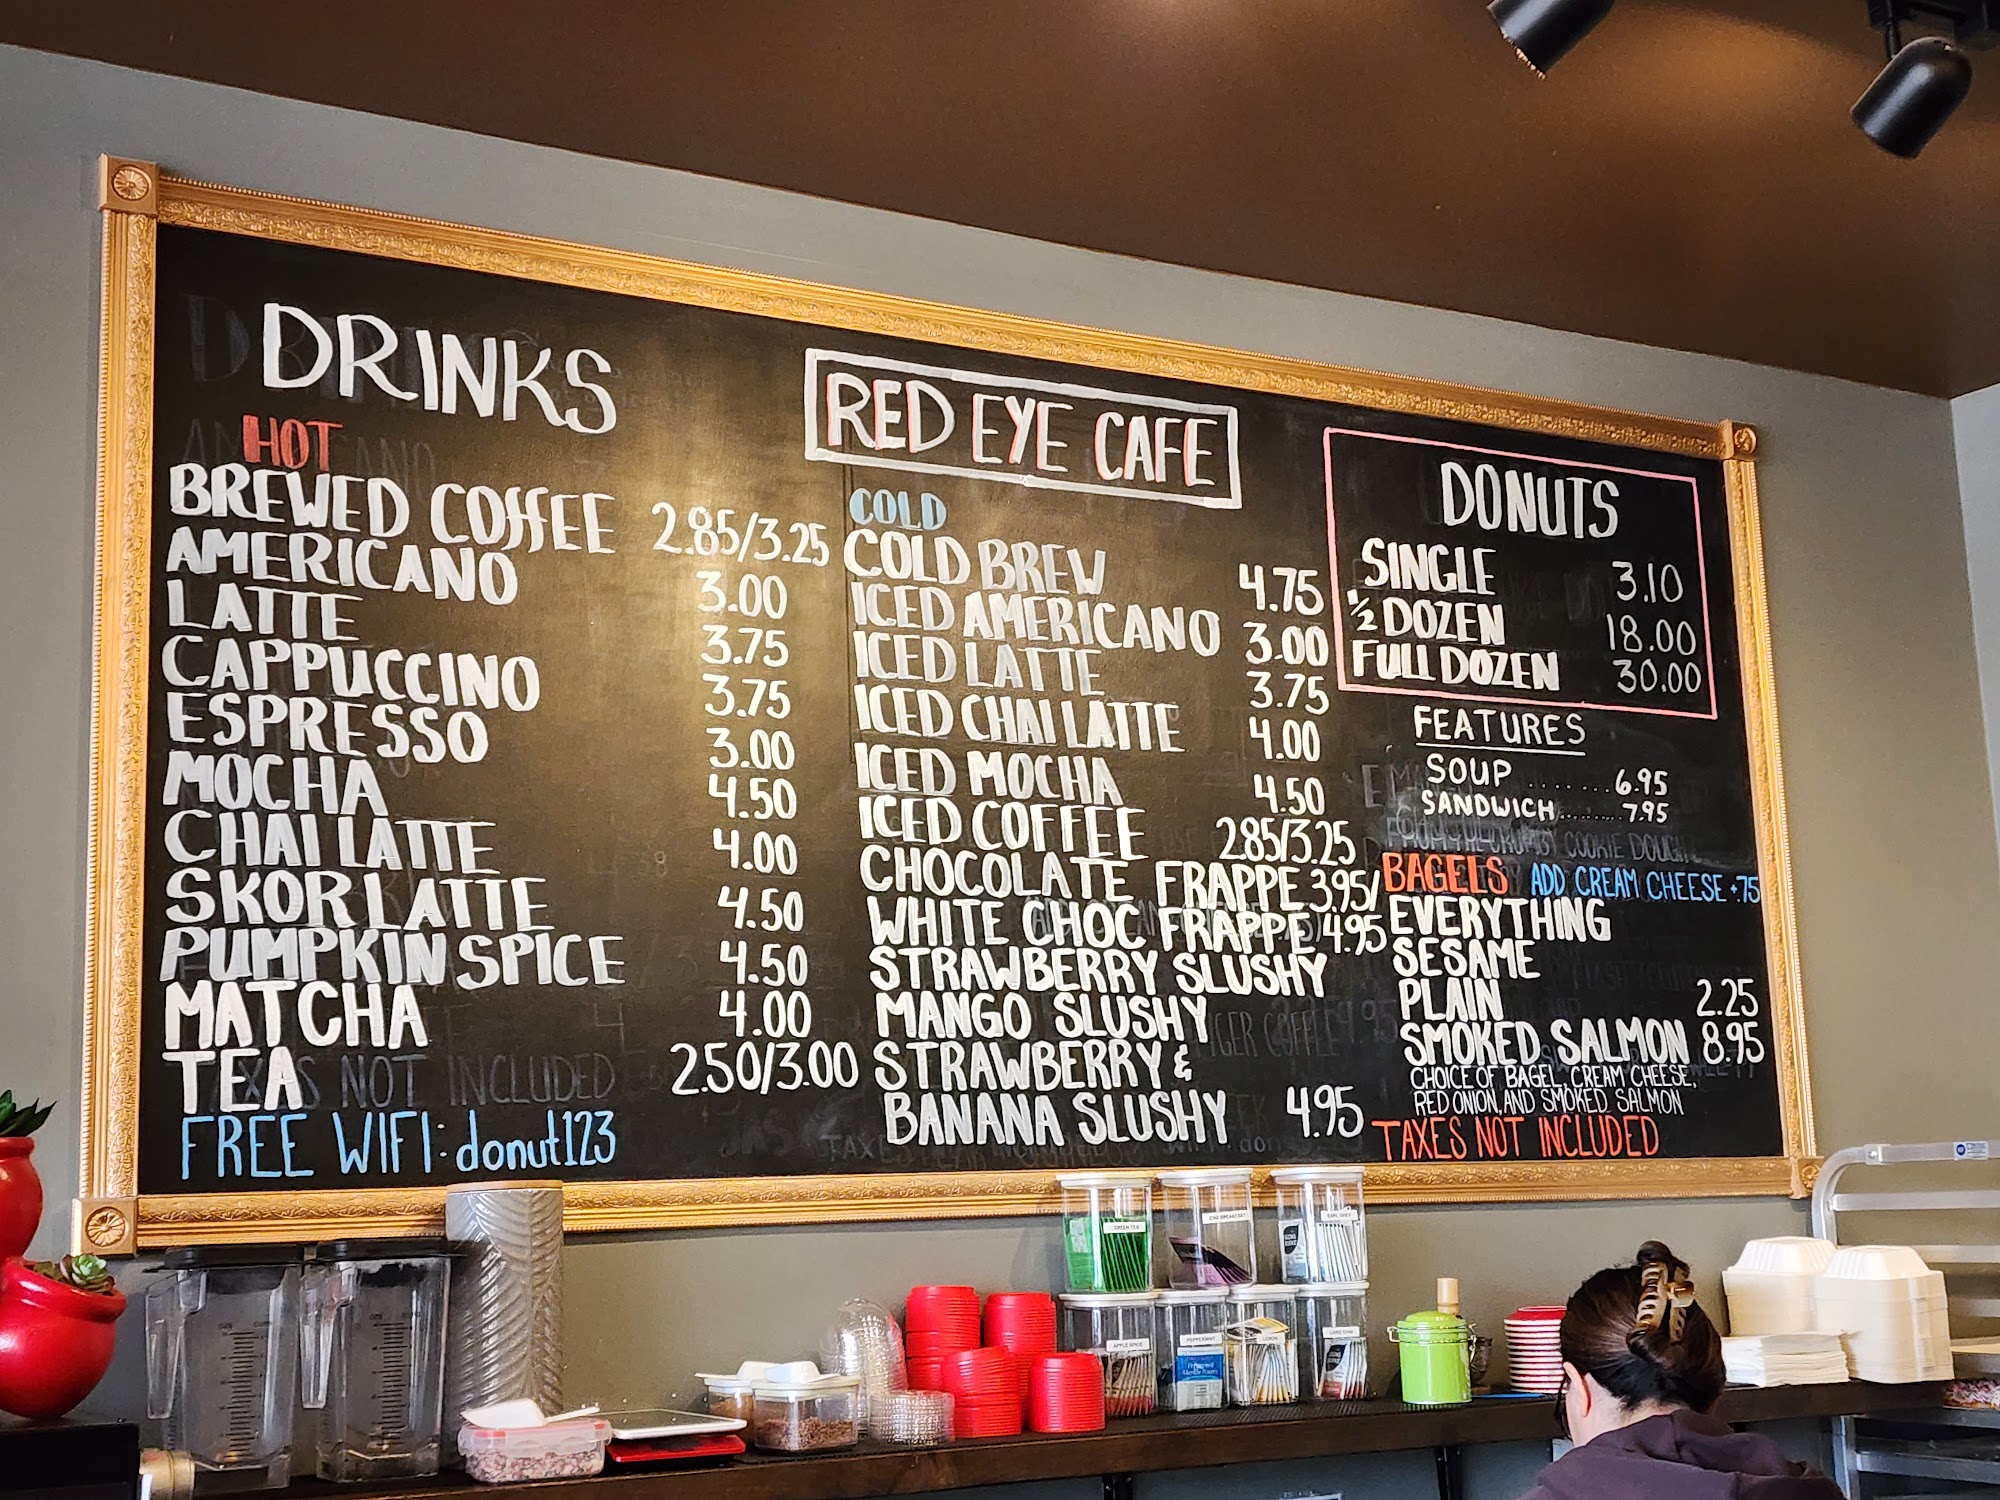 DRINKS
HOT
BREWED COFFEE 2.85/3.25
AMERICANO 3.00
LATTE 3.75
CAPPUCCINO 3.75
ESPRESSO 3.00
MOCHA 4.50
CHAI LATTE 4.00
SKOR LATTE 4.50
PUMPKIN SPICE 4.50
MATCHA 4.00
TEA 2.50/3.00
FREE WIFI: donut123
RED EYE CAFE
COLD
COLD BREW 4.75
ICED AMERICANO 3.00
ICED LATTE 3.75
ICED CHAI LATTE 4.00
ICED MOCHA 4.50
ICED COFFEE 2.85/3.25
CHOCOLATE FRAPPE 3.95/
WHITE CHOC FRAPPE 4.95
STRAWBERRY SLUSHY
MANGO SLUSHY
STRAWBERRY &
BANANA SLUSHY 4.95
DONUTS
SINGLE 3.10
1/2 DOZEN 18.00
FULL DOZEN 30.00
FEATURES
SOUP .......6.95
SANDWICH.........7.95
BAGELS ADD CREAM CHEESE +.75
EVERYTHING
SESAME
PLAIN 2.25
SMOKED SALMON 8.95
CHOICE OF BAGEL, CREAM CHEESE,
RED ONION, AND SMOKED SALMON
TAXES NOT INCLUDED
TAXES NOT INCLUDED
GREEN TEA
EARL GREY
APPLE SPICE
PEPPERMINT
LEMON